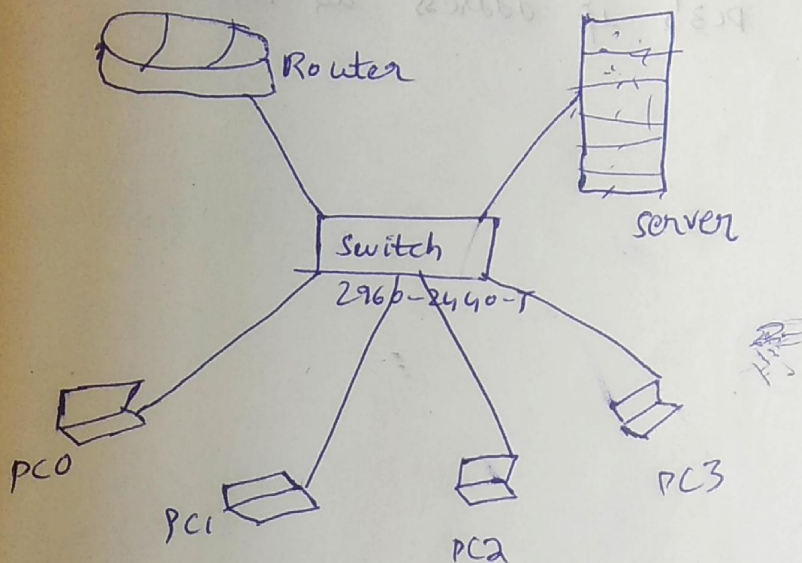 Router
server
Switch
2960-2440-T
PC0
PC1
PC2
PC3